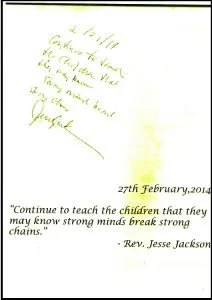 2/27/14
Continue to teach
the children that
they may know
strong minds break
strong chains
27th February,2014
"Continue to teach the children that they
may know strong minds break strong
chains."
- Rev. Jesse Jackson